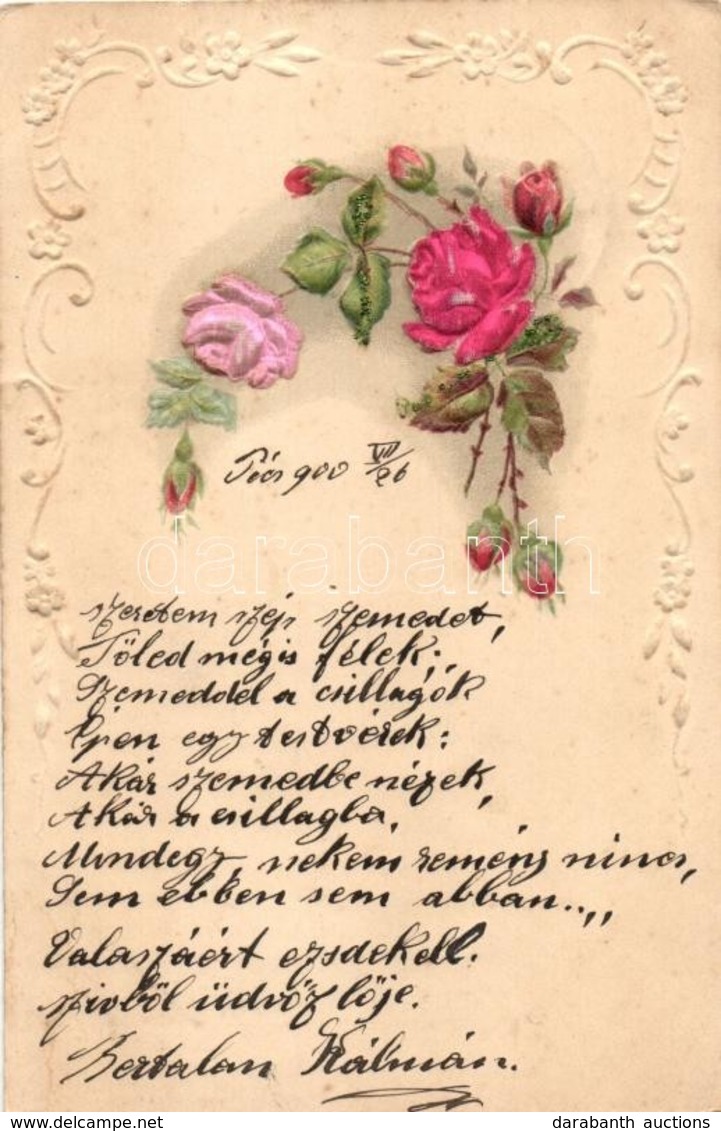 Pécs 900 VII/26
darabanth
szeretem szép szemedet,
Tőled mégis félek;
Szemeddel a csillagok
Épen egy testvérek:
Akár szemedbe nézek,
Akár a csillagba,
Mindegy, nekem remény nincs,
Sem ebben sem abban..,,
Valaszáért esdekell.
szivből üdvözlője.
Bertalan Kálmán.
darabanth auctions
darabanth auctions